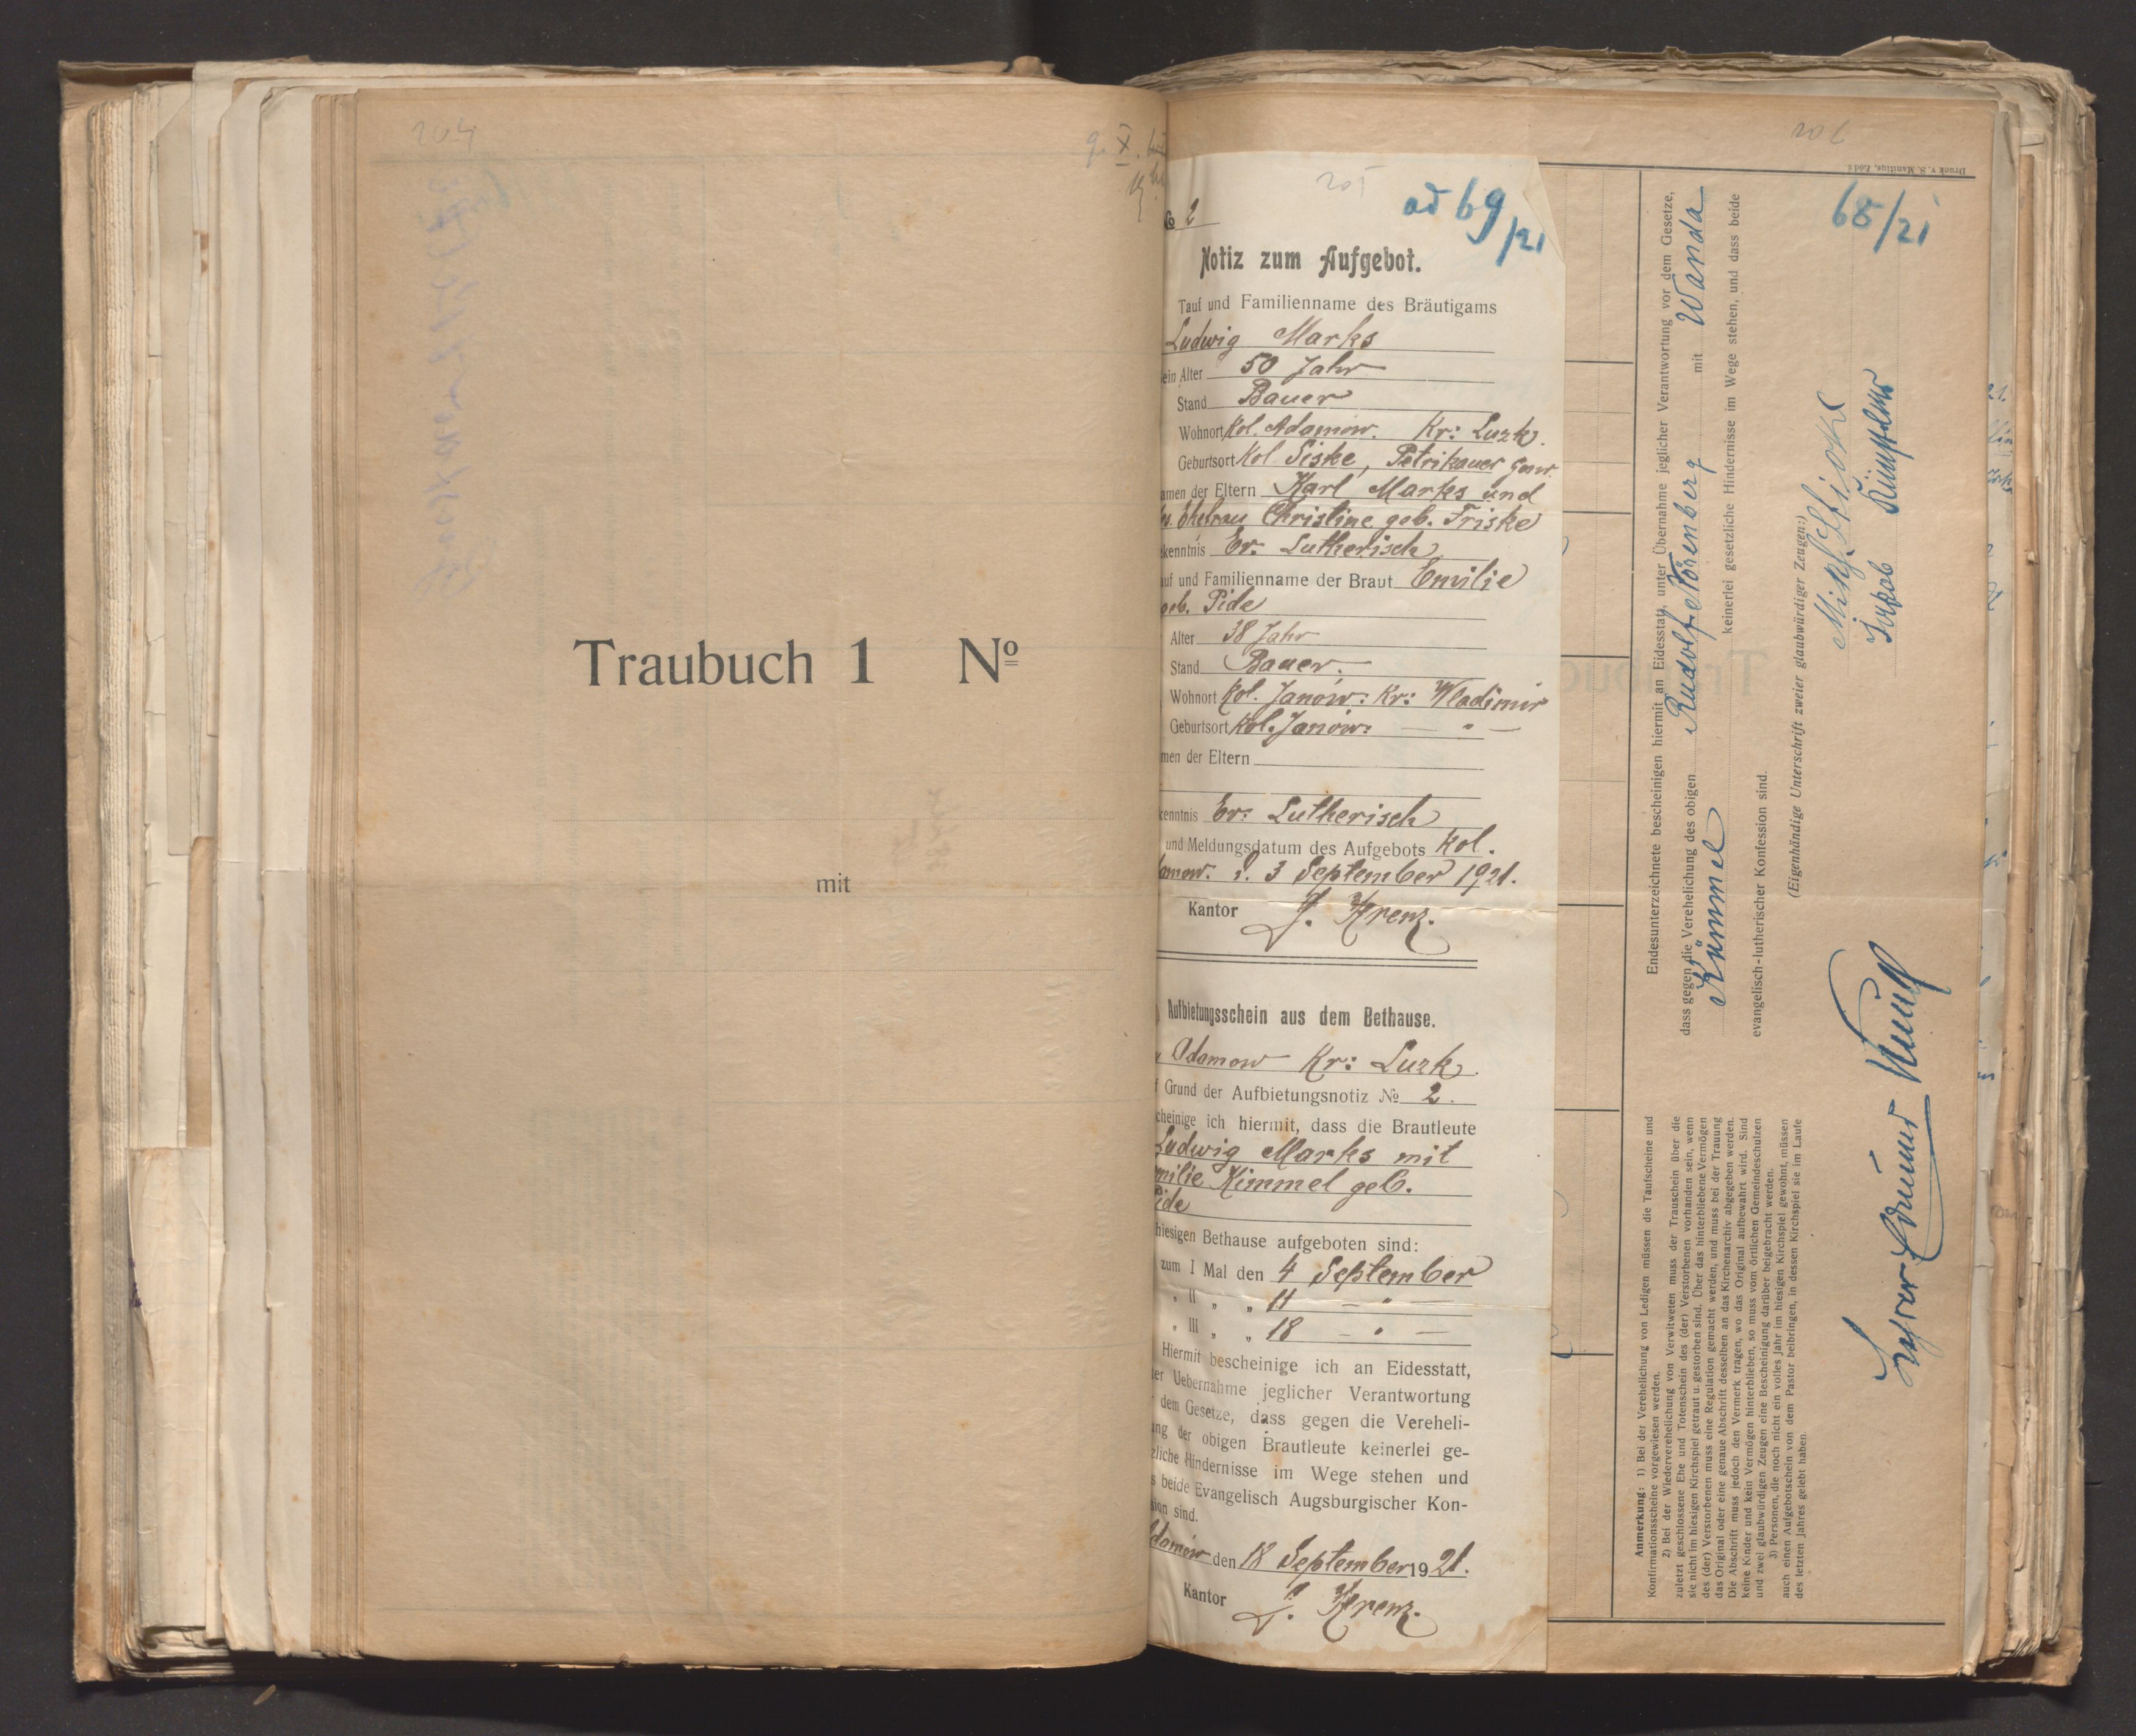 204
Traubuch 1 Nº
mit
205
ad 69/21
No 2
Notiz zum Aufgebot.
Tauf und Familienname des Bräutigams
Ludwig Marks
ein Alter 50 Jahr
Stand Bauer
Wohnort Kol. Adamow. Kr: Luzk.
Geburtsort Kol Siske, Petrikauer Gouv.
amen der Eltern Karl Marks und
Ehefrau Christine geb. Friske
kenntnis Ev. Lutherisch
auf und Familienname der Braut Emilie
geb. Pide
Alter 38 Jahr
Stand Bauer.
Wohnort Kol. Janów: Kr: Wladimir
Geburtsort Kol. Janów: — " —
men der Eltern
kenntnis Ev: Lutherisch
und Meldungsdatum des Aufgebots Kol.
damow. d. 3 September 1921.
Kantor J. Krenz.
Aufbietungsschein aus dem Bethause.
Adamow Kr: Luzk.
f Grund der Aufbietungsnotiz No 2.
cheinige ich hiermit, dass die Brautleute
Ludwig Marks mit
milie Kimmel geb.
Pide
hiesigen Bethause aufgeboten sind:
zum I Mal den 4 September
" II " " 11 — " —
" III " " 18 — " —
Hiermit bescheinige ich an Eidesstatt,
ter Uebernahme jeglicher Verantwortung
r dem Gesetze, dass gegen die Vereheli-
ung der obigen Brautleute keinerlei ge-
zliche Hindernisse im Wege stehen und
s beide Evangelisch Augsburgischer Kon-
sion sind.
Adamów den 18 September 1921.
Kantor J. Krenz.
Druck v. S. Manitius, Łódź
68/21
Endesunterzeichnete bescheinigen hiermit an Eidesstatt, unter Übernahme jeglicher Verantwortung vor dem Gesetze,
dass gegen die Verehelichung des obigen Rudolf Nörenberg mit Wanda
Kümmel keinerlei gesetzliche Hindernisse im Wege stehen, und dass beide
evangelisch-lutherischer Konfession sind.
(Eigenhändige Unterschrift zweier glaubwürdiger Zeugen:)
Jakob
Anmerkung: 1) Bei der Verehelichung von Ledigen müssen die Taufscheine und
Konfirmationsscheine vorgewiesen werden.
2) Bei der Wiederverehelichung von Verwitweten muss der Trauschein über die
zuletzt geschlossene Ehe und Totenschein des (der) Verstorbenen vorhanden sein, wenn
sie nicht im hiesigen Kirchspiel getraut u. gestorben sind. Über das hinterbliebene Vermögen
des (der) Verstorbenen muss eine Regulation gemacht werden, und muss bei der Trauung
das Original oder eine genaue Abschrift desselben an das Kirchenarchiv abgegeben werden.
Die Abschrift muss jedoch den Vermerk tragen, wo das Original aufbewahrt wird. Sind
keine Kinder und kein Vermögen hinterblieben, so muss vom örtlichen Gemeindeschulzen
und zwei glaubwürdigen Zeugen eine Bescheinigung darüber beigebracht werden.
3) Personen, die noch nicht ein volles Jahr im hiesigen Kirchspiel gewohnt, müssen
auch einen Aufgebotschein von dem Pastor beibringen, in dessen Kirchspiel sie im Laufe
des letzten Jahres gelebt haben.